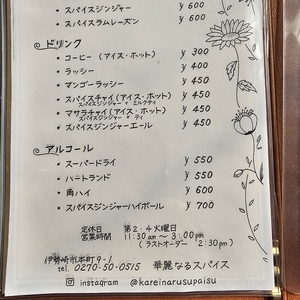 ・スパイスジンジャー ¥ 600
・スパイスラムレーズン ¥ 600
◎ ドリンク
・コーヒー (アイス・ホット) ¥ 300
・ラッシー ¥ 400
・マンゴーラッシー ¥ 450
・スパイスチャイ (アイス・ホット) ¥ 450
スパイスジンジャー + ミルクティ
・マサラチャイ (アイス・ホット) ¥ 450
スパイスジンジャー + ティ
・スパイスジンジャーエール ¥ 450
◎ アルコール
・スーパードライ ¥ 550
・ハートランド ¥ 550
・角ハイ ¥ 600
・スパイスジンジャーハイボール ¥ 700
定休日 第2・4火曜日
営業時間 11:30 am ~ 3:00 pm
(ラストオーダー 2:30 pm)
伊勢崎市本町9-1
tel. 0270-50-0515 華麗なるスパイス
instagram @kareinarusupaisu